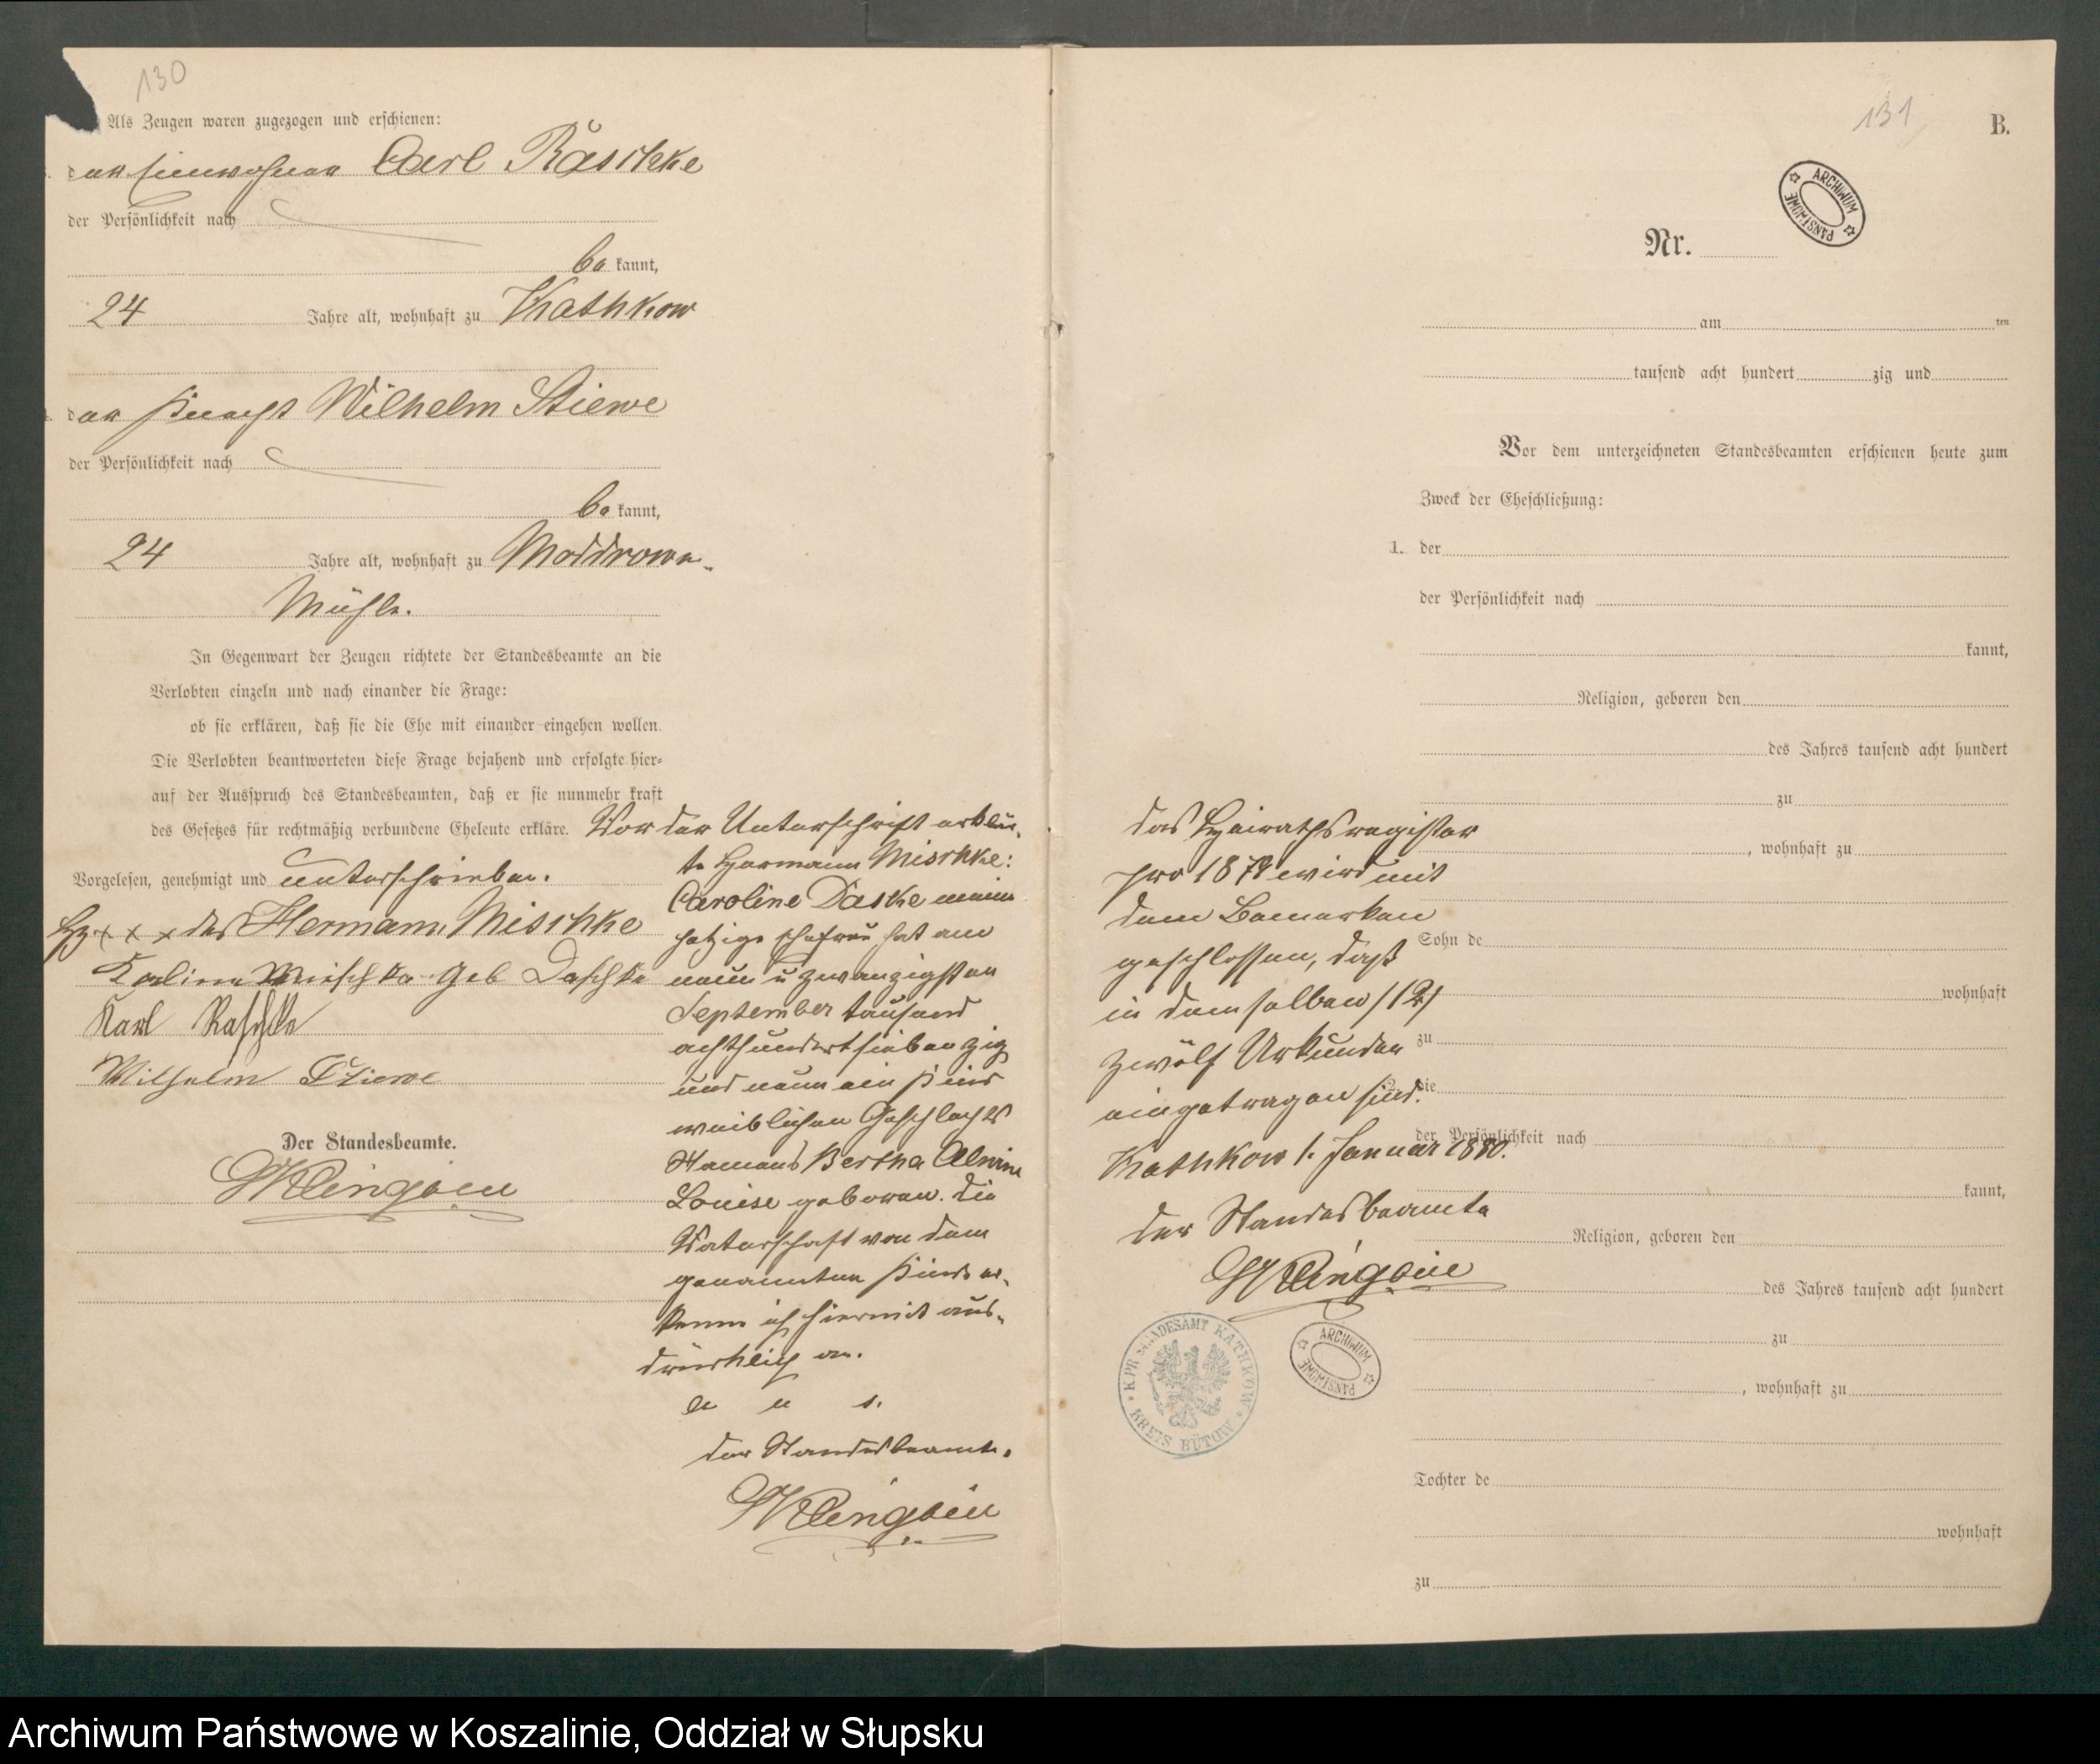 130
Als Zeugen waren zugezogen und erschienen:
der Einwohner Carl Räschke
der Persönlichkeit nach
be kannt,
24 Jahre alt, wohnhaft zu Kathkow
der Knecht Wilhelm Stiewe
der Persönlichkeit nach
be kannt,
24 Jahre alt, wohnhaft zu Moddrower
Mühle.
In Gegenwart der Zeugen richtete der Standesbeamte an die
Verlobten einzeln und nach einander die Frage:
ob sie erklären, daß sie die Ehe mit einander eingehen wollen.
Die Verlobten beantworteten diese Frage bejahend und erfolgte hier-
auf der Ausspruch des Standesbeamten, daß er sie nunmehr kraft
des Gesetzes für rechtmäßig verbundene Eheleute erkläre.
Vorgelesen, genehmigt und unterschrieben.
Hz + x x des Hermann Mischke
Karline Mischke geb Daschke
Karl Raschke
Wilhelm Stiewe
Der Standesbeamte.
Vor der Unterschrift erklär-
te Hermann Mischke:
Caroline Daske meine
jetzige Ehefrau hat am
neun u zwanzigsten
September tausend
achthundertsiebenzig
und neun ein Kind
weiblichen Geschlechts
Namens Bertha Alwine
Louise geboren. Die
Vaterschaft von dem
genannten Kinde er-
kenne ich hiermit aus-
drücklich an.
v u s.
der Standesbeamte.
131
B.
ARCHIWUM PAŃSTWOWE
Nr.
am ten
tausend acht hundert zig und
Vor dem unterzeichneten Standesbeamten erschienen heute zum
Zweck der Eheschließung:
1. der
der Persönlichkeit nach
kannt,
Religion, geboren den
des Jahres tausend acht hundert
zu
, wohnhaft zu
Sohn de
wohnhaft
zu
2. die
der Persönlichkeit nach
kannt,
Religion, geboren den
des Jahres tausend acht hundert
zu
, wohnhaft zu
Tochter de
wohnhaft
zu
das Heirathsregister
pro 1879 wird mit
dem Bemerken
geschlossen, daß
in demselben /12/
zwölf Urkunden
eingetragen sind.
Kathkow 1. Januar 1880.
der Standesbeamte
KPR STANDESAMT KATHKOW
KREIS BÜTOW
ARCHIWUM PAŃSTWOWE
Archiwum Państwowe w Koszalinie, Oddział w Słupsku